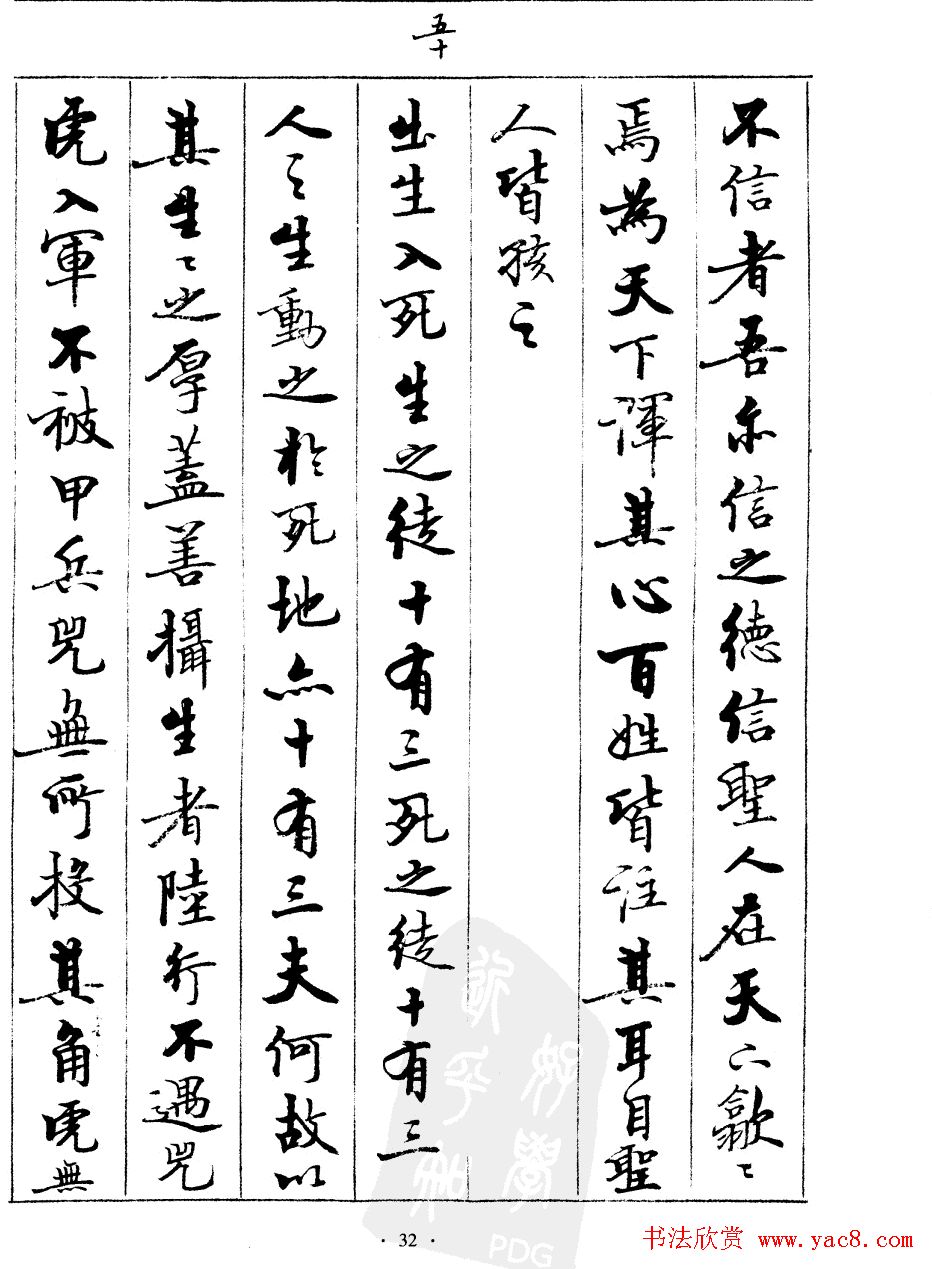 五十
不信者吾亦信之德信聖人在天下歙〻
焉為天下渾其心百姓皆注其耳目聖
人皆孩之
出生入死生之徒十有三死之徒十有三
人之生動之於死地亦十有三夫何故以
其生〻之厚蓋善攝生者陸行不遇兕
虎入軍不被甲兵兕無所投其角虎無
好學
近乎知
PDG
· 32 ·
书法欣赏 www.yac8.com